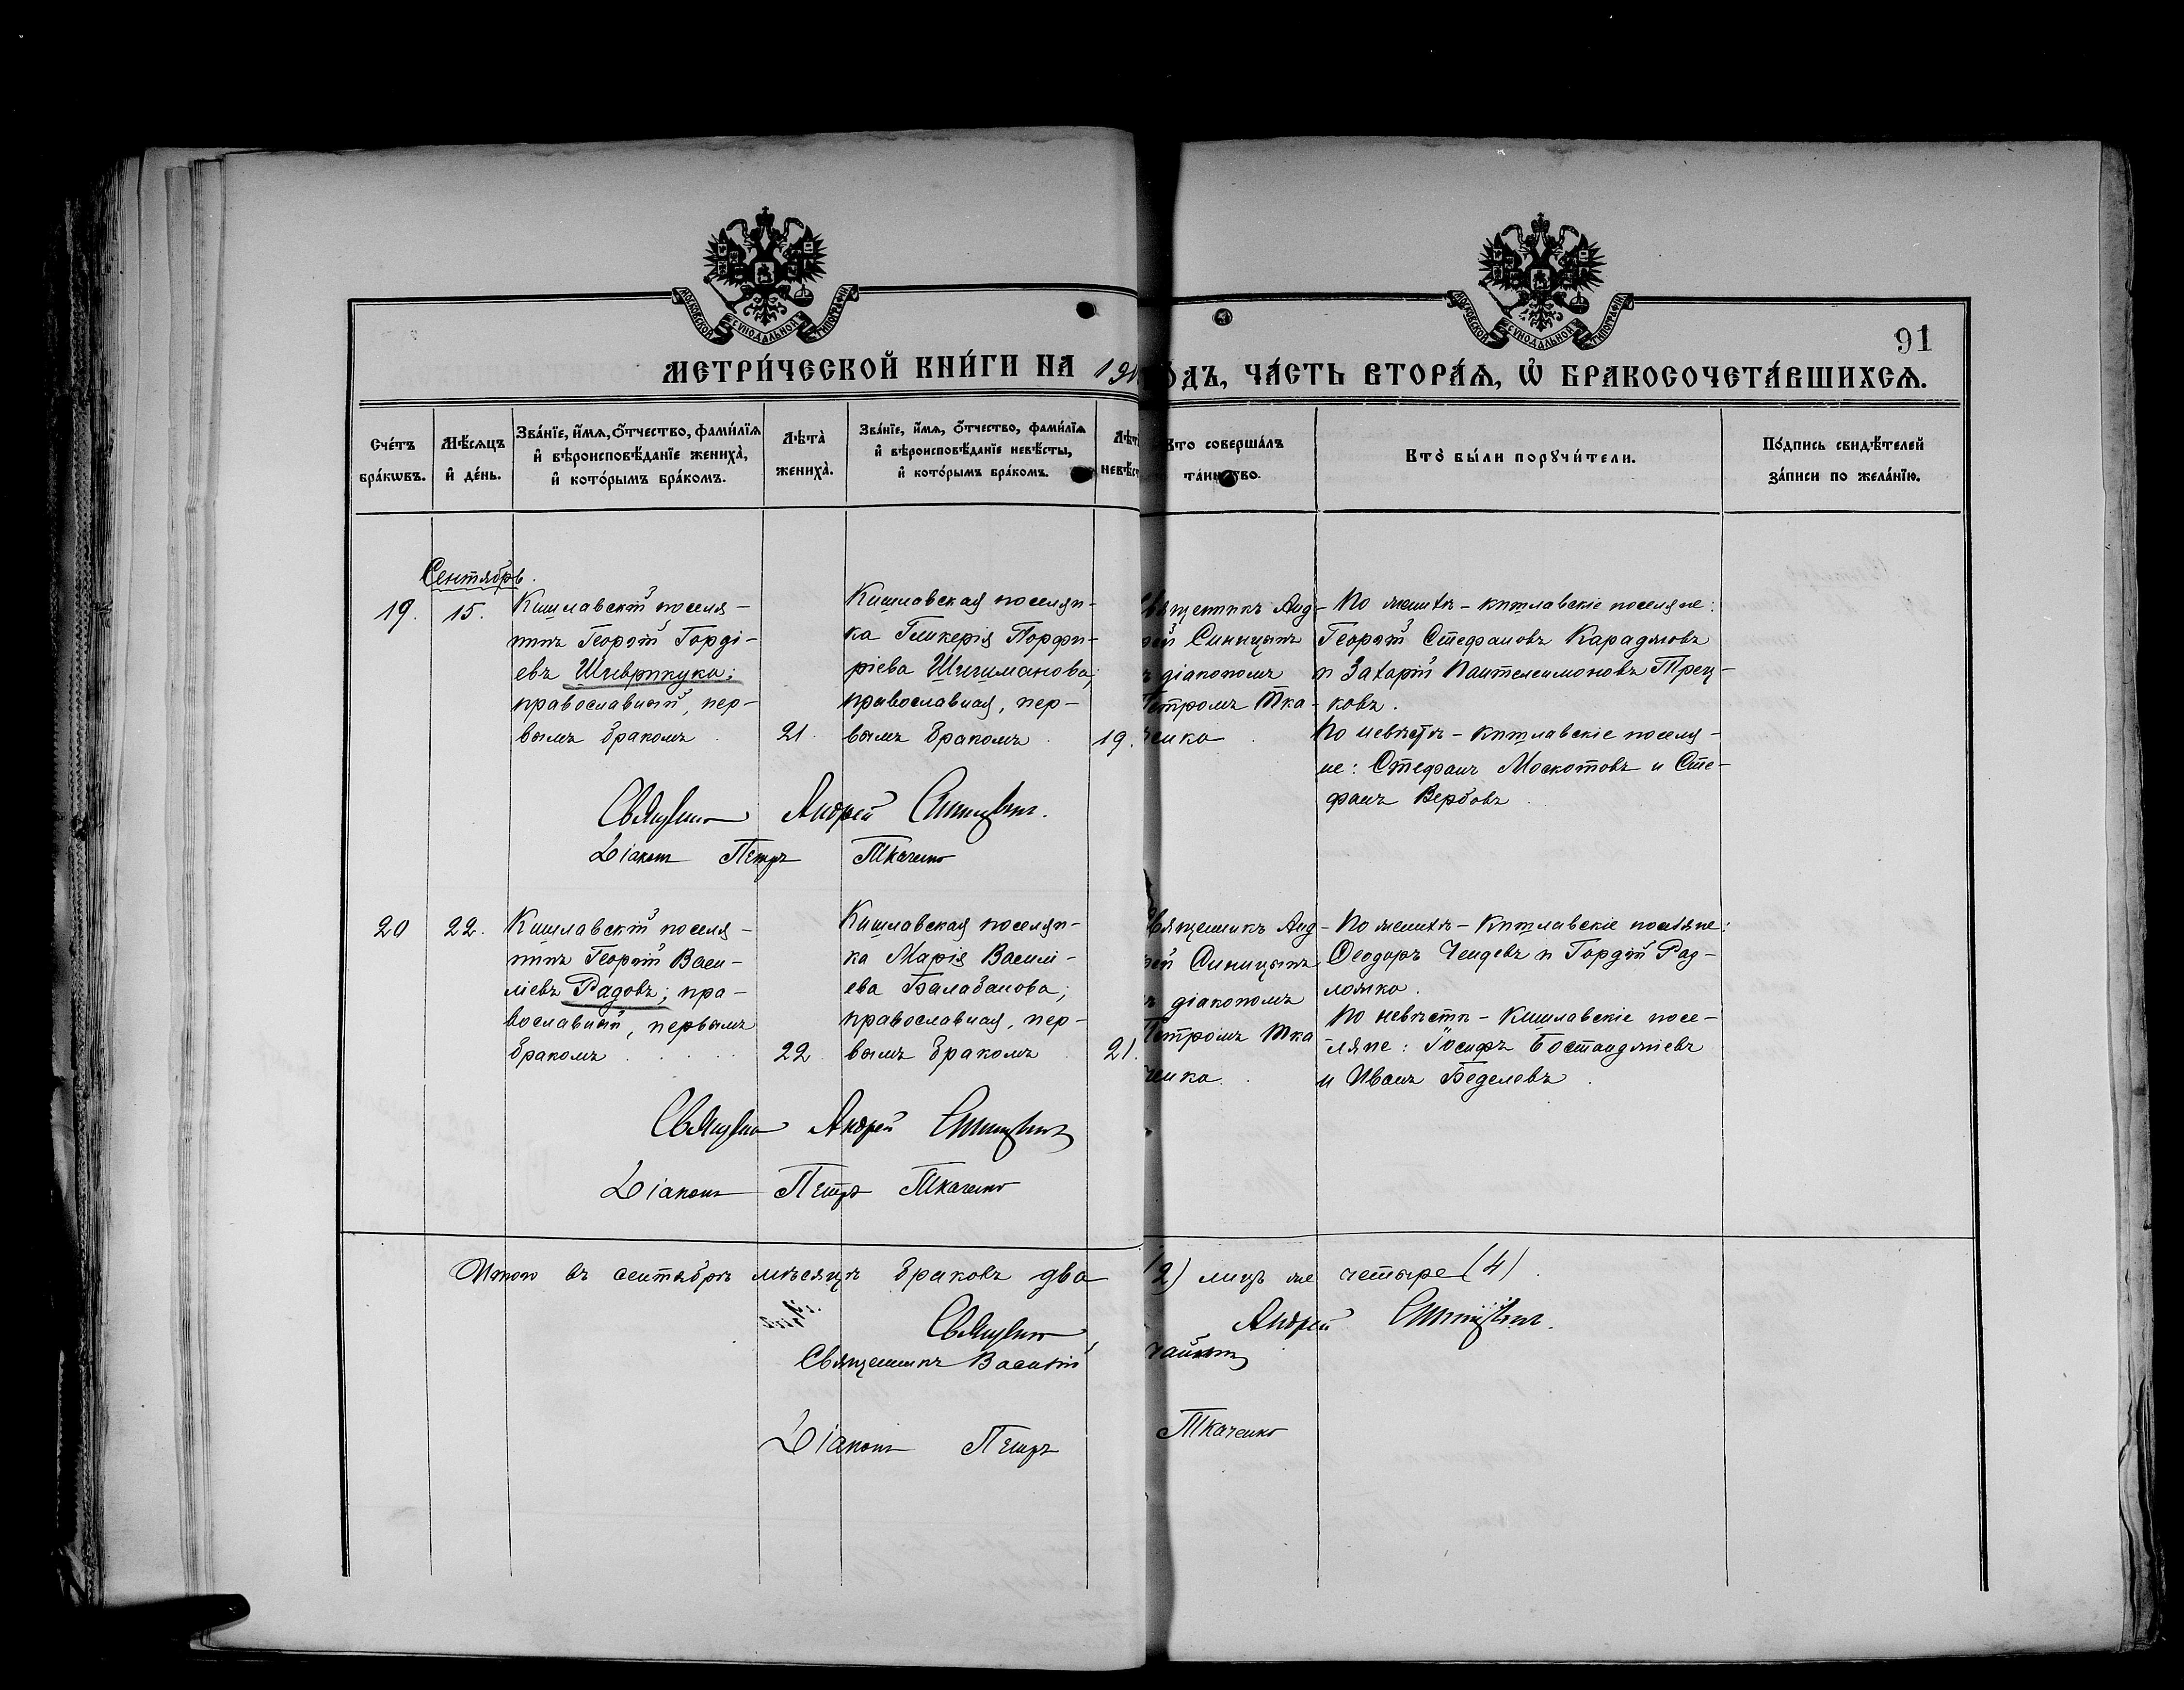 МОСКОВСКОЙ СУНОДАЛЬНОЙ ТИПОГРАФІИ
МОСКОВСКОЙ СУНОДАЛЬНОЙ ТИПОГРАФІИ
91
МЕТРИ́ЧЕСКОЙ КНИ́ГИ НА 191
О́ДЪ, ЧА́СТЬ ВТОРА́Ѧ, Ѡ҆ БРАКОСОЧЕТА́ВШИХСѦ.
Сче́тъ бра́кωвъ.
Мѣ́сѧцъ и҆ де́нь.
Зва́нїе, и҆́мѧ, о҆́тчество, фами́лїѧ и҆ вѣроисповѣ́данїе жениха̀, и҆ кото́рымъ бра́комъ.
Лѣта̀ жениха̀.
Зва́нїе, и҆́мѧ, о҆́тчество, фами́лїѧ и҆ вѣроисповѣ́данїе невѣ́сты, и҆ кото́рымъ бра́комъ.
Лѣт
невѣ́ст
Кто соверша́лъ та́инство.
Кто̀ бы́ли порꙋчи́тели.
По́дпись свидѣ́телей за́писи по жела́нїю.
Сентябрь.
19.
15.
Кишлавскій поселя-
нинъ Георгій Горді-
евъ
православный, пер-
вымъ бракомъ
21.
Кишлавская поселян-
ка Гликерія Порфи-
ріева Шишманова;
православная, пер-
вымъ бракомъ
19.
Священникъ Анд-
рей Синицынъ
діакономъ
Петромъ Тка-
ченко
По женихѣ - кишлавскіе поселяне:
Георгій Стефановъ Караджовъ
и Захарій Пантелеимоновъ Трен-
ковъ.
По невѣстѣ - кишлавскіе поселя-
не: Стефанъ Москотовъ и Сте-
фанъ Вербовъ.
Священник Андрей Синицынъ.
Діаконъ Петръ Ткаченко
20
22.
Кишлавскій поселя-
нинъ Георгій Васи-
ліевъ Радовъ; пра-
вославный, первымъ
бракомъ
22
Кишлавская поселян-
ка Марія Василі-
ева Балабанова;
православная, пер-
вымъ бракомъ
21.
Священникъ Анд-
рей Синицынъ
діакономъ
Петромъ Тка
ченко.
По женихѣ - Кишлавскіе поселяне:
Ѳеодоръ Чендевъ и Гордій Рад-
ложко.
По невѣстѣ - Кишлавскіе посе-
ляне: Іосифъ Бостанджіевъ
и Иванъ Беделевъ.
Священник Андрей Синицынъ
Діаконъ Петръ Ткаченко
Итого въ сентябрѣ мѣсяцѣ браковъ два (2) лицъ же четыре (4).
Священник Андрей Синицынъ.
Священникъ Василій
Діаконъ Петръ Ткаченко